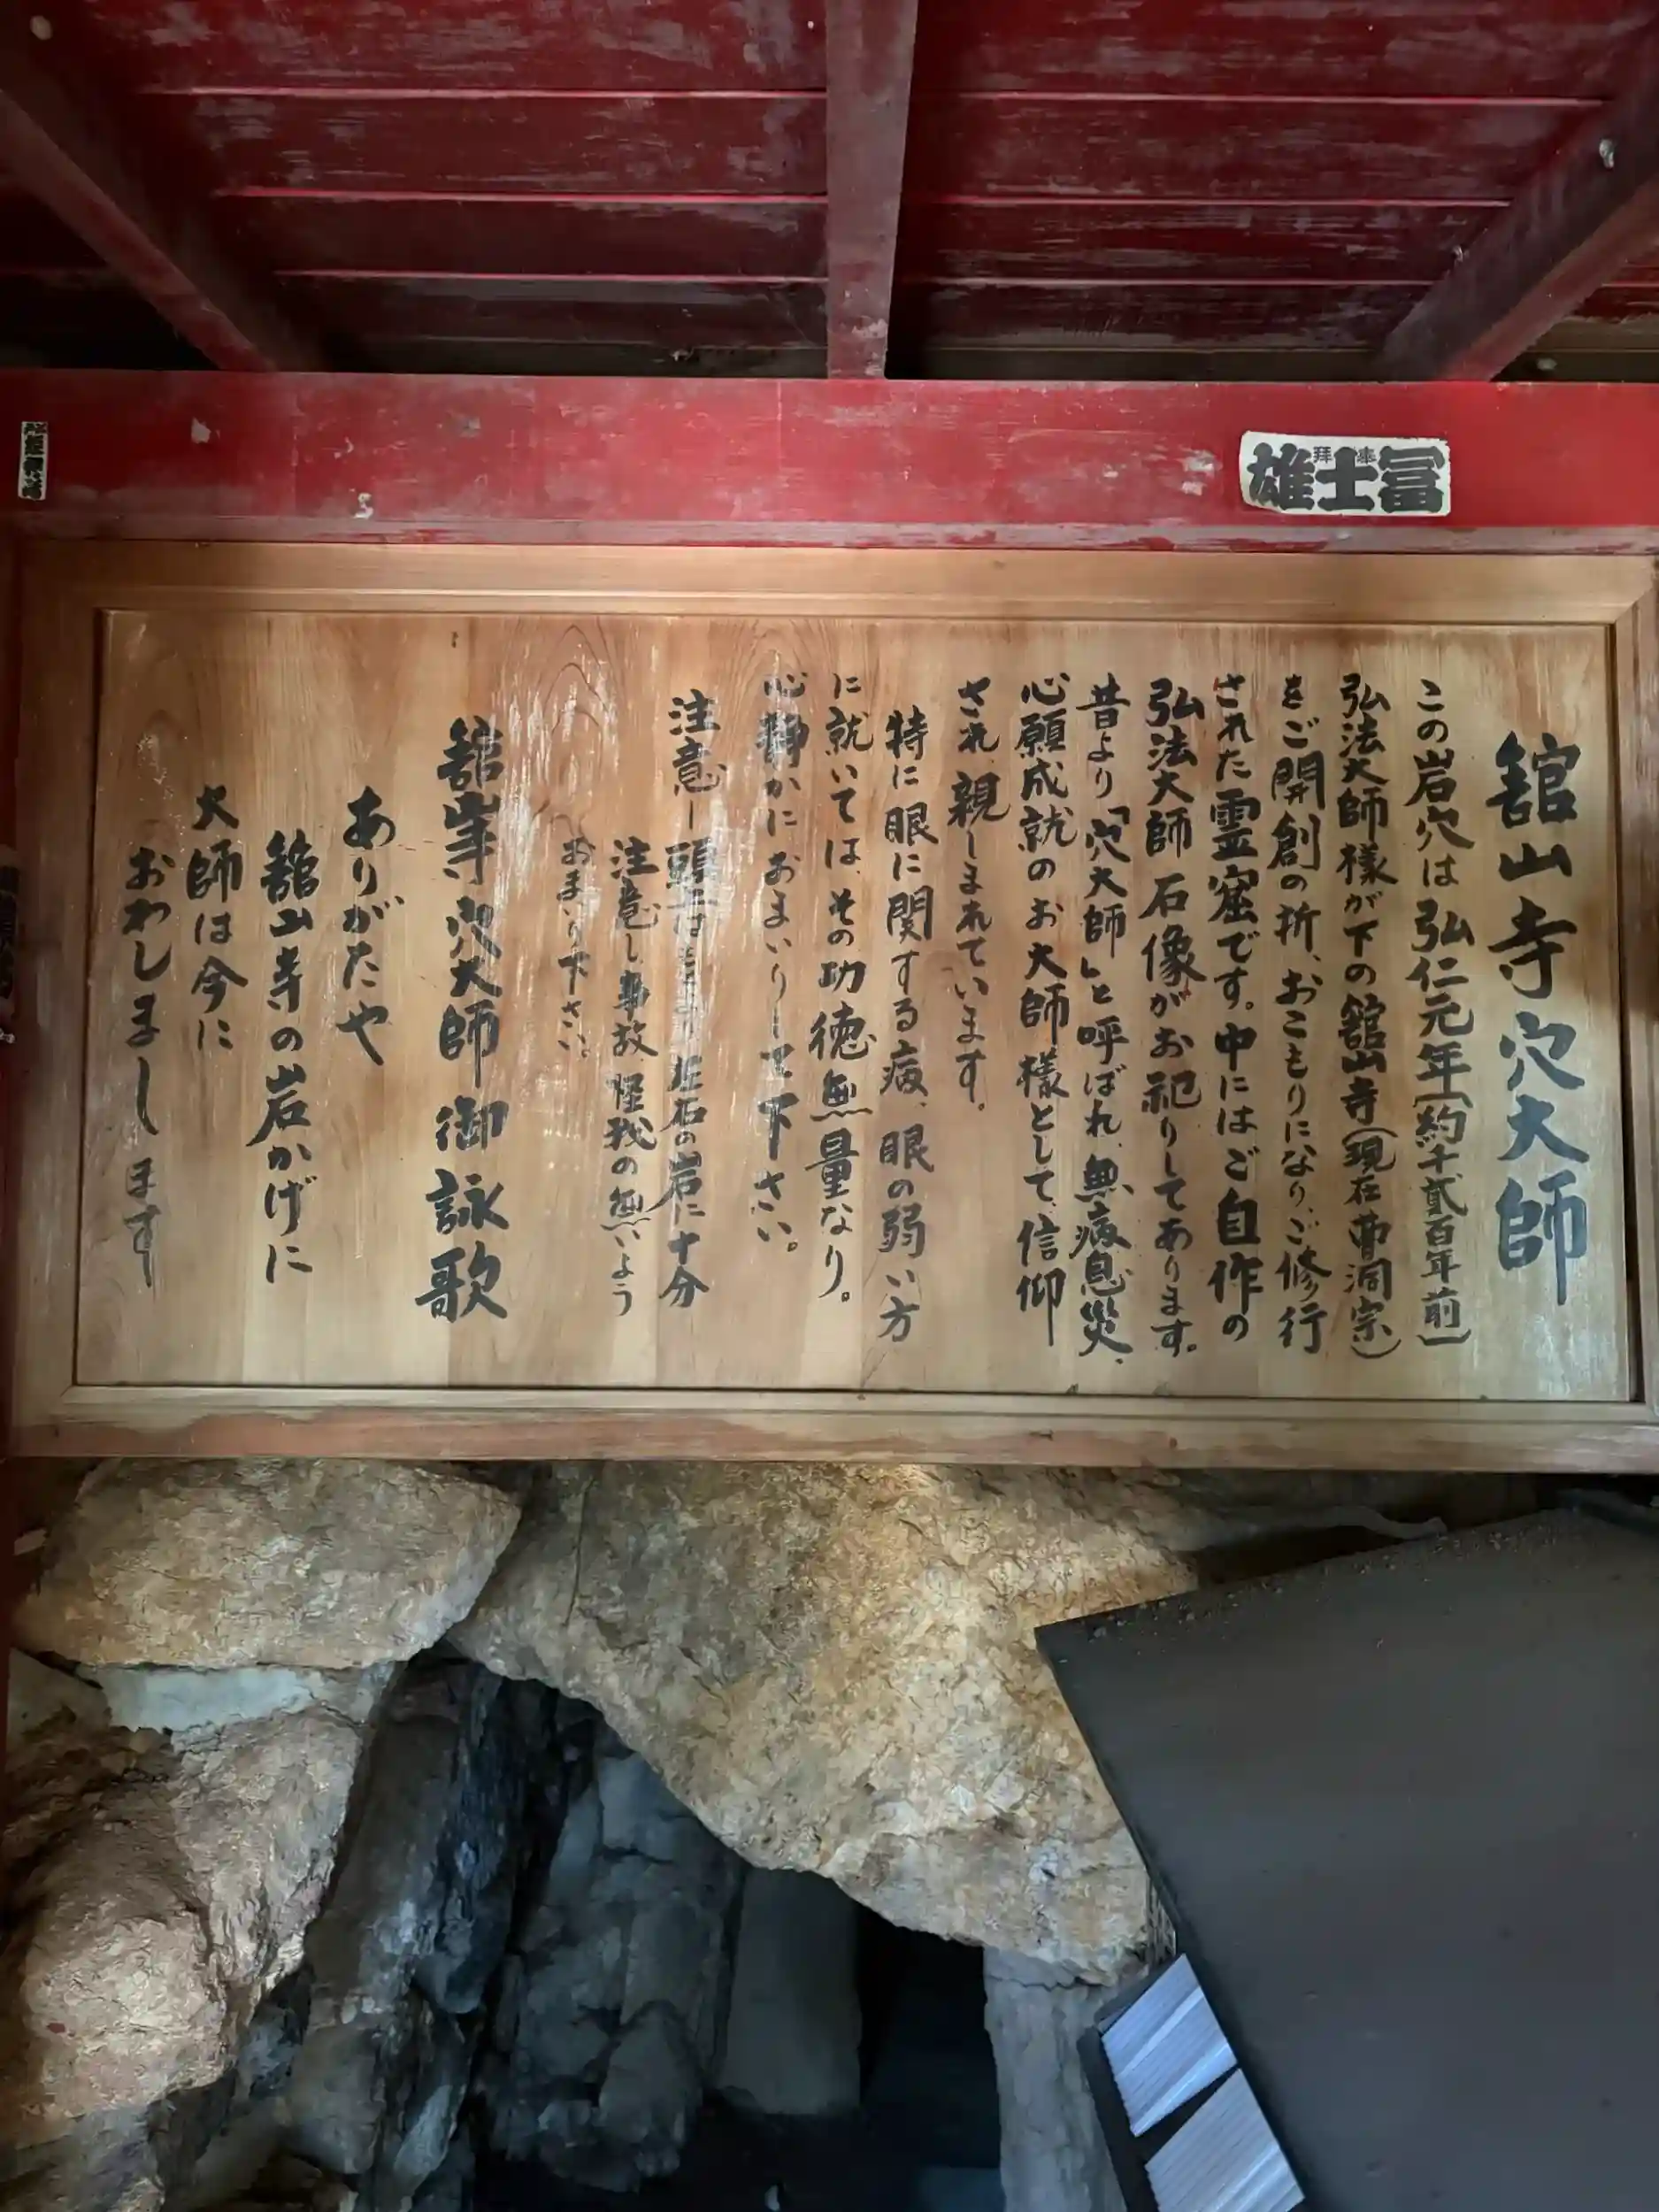 舘山寺穴大師
この岩穴は弘仁元年(約千貳百年前)
弘法大師様が下の舘山寺(現在曹洞宗)
をご開創の折、おこもりになり、ご修行
された霊窟です。中にはご自作の
弘法大師石像がお祀りしてあります。
昔より「穴大師」と呼ばれ、無病息災、
心願成就のお大師様として、信仰
され親しまれています。
特に眼に関する病、眼の弱い方
に就いては、その功徳無量なり。
心静かにおまいりして下さい。
注意ー頭上は 左右の岩に十分
注意し、事故怪我の無いよう
おまいり下さい。
舘山寺穴大師御詠歌
ありがたや
舘山寺の岩かげに
大師は今に
おわしまします
雄士冨
拝